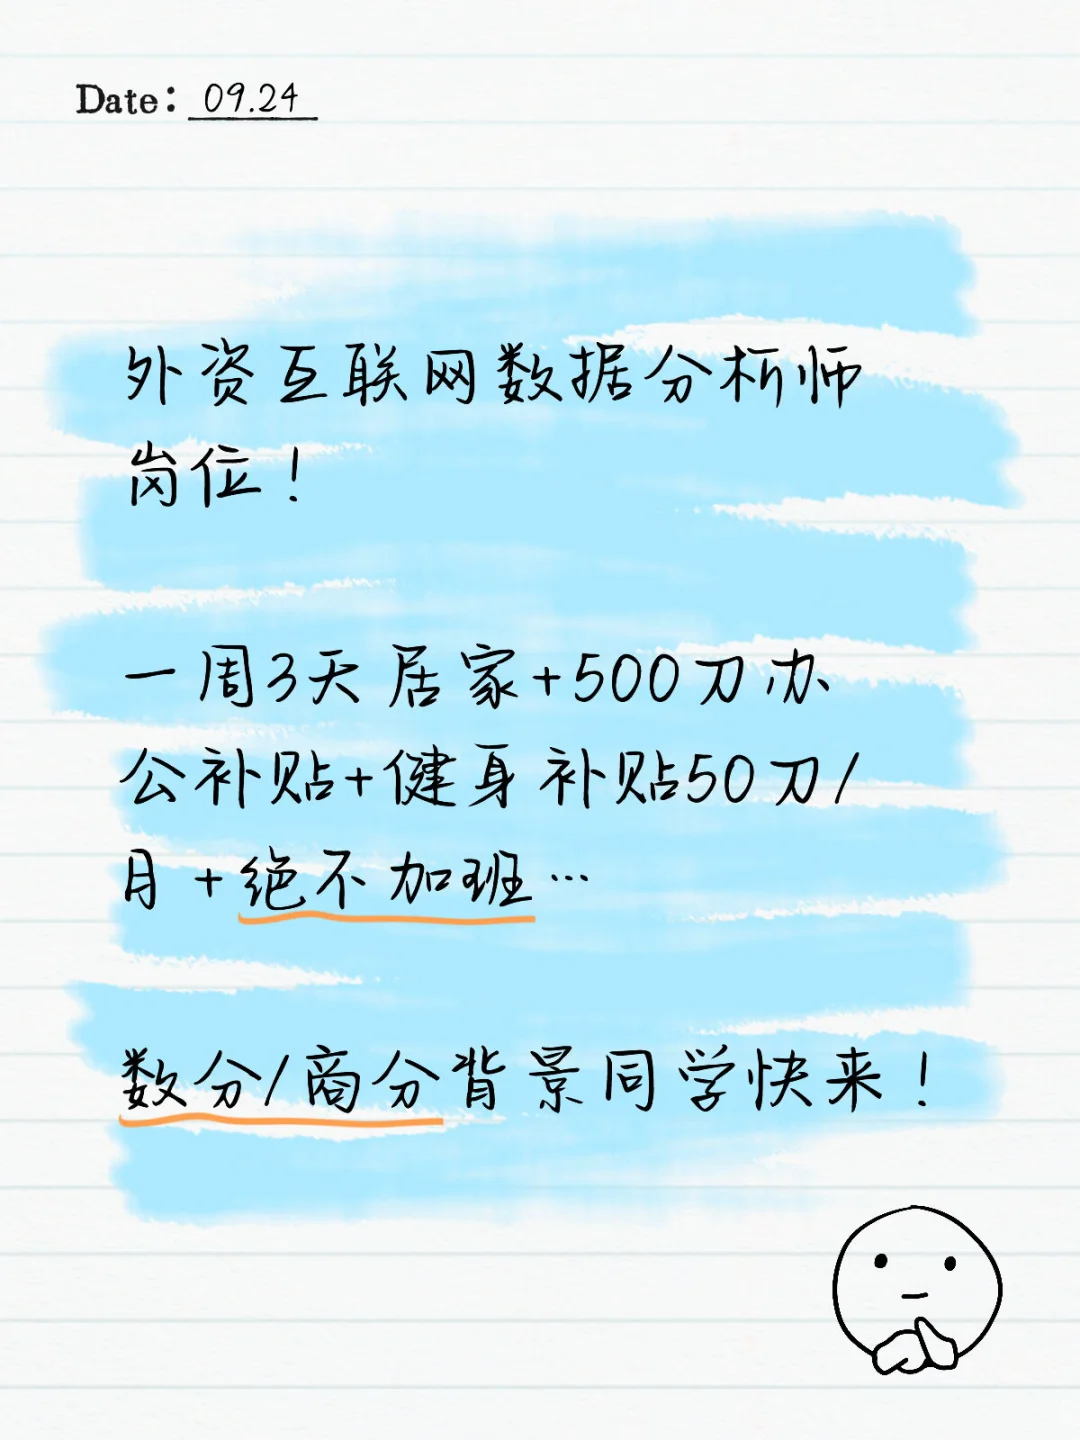 Date: 09.24
外资互联网数据分析师
岗位！
一周3天居家+500刀办
公补贴+健身补贴50刀/
月+绝不加班…
数分/商分背景同学快来！